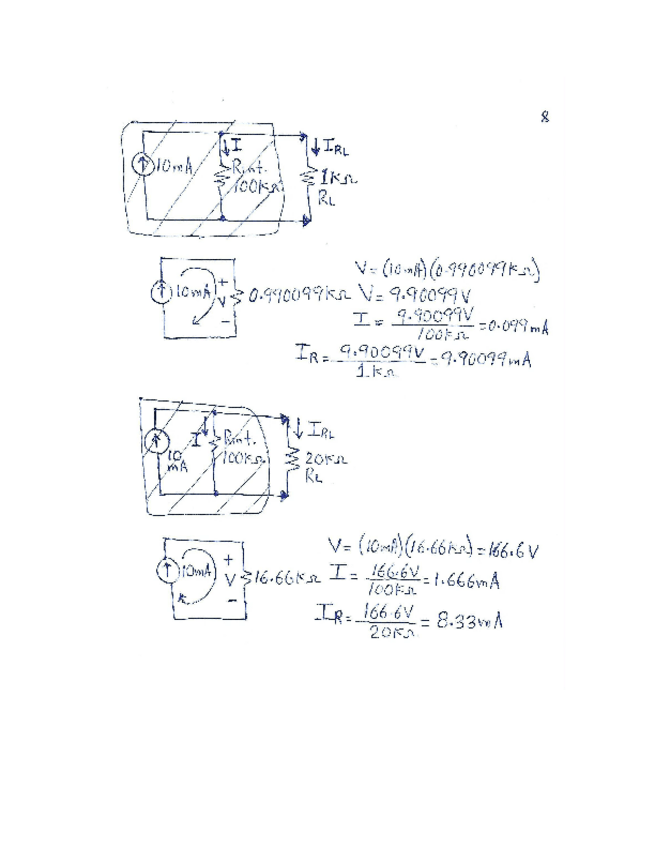 8
I IRL
10mA Rint. 1KΩ
100KΩ RL
V = (10mA)(0.990099KΩ)
10mA + V - 0.990099KΩ V = 9.90099V
I = 9.90099V / 100KΩ = 0.099mA
IR = 9.90099V / 1KΩ = 9.90099mA
I IRL
10 mA Rint. 100KΩ 20KΩ RL
V = (10mA)(16.66KΩ) = 166.6V
10mA + V - 16.66KΩ I = 166.6V / 100KΩ = 1.666mA
IR = 166.6V / 20KΩ = 8.33mA